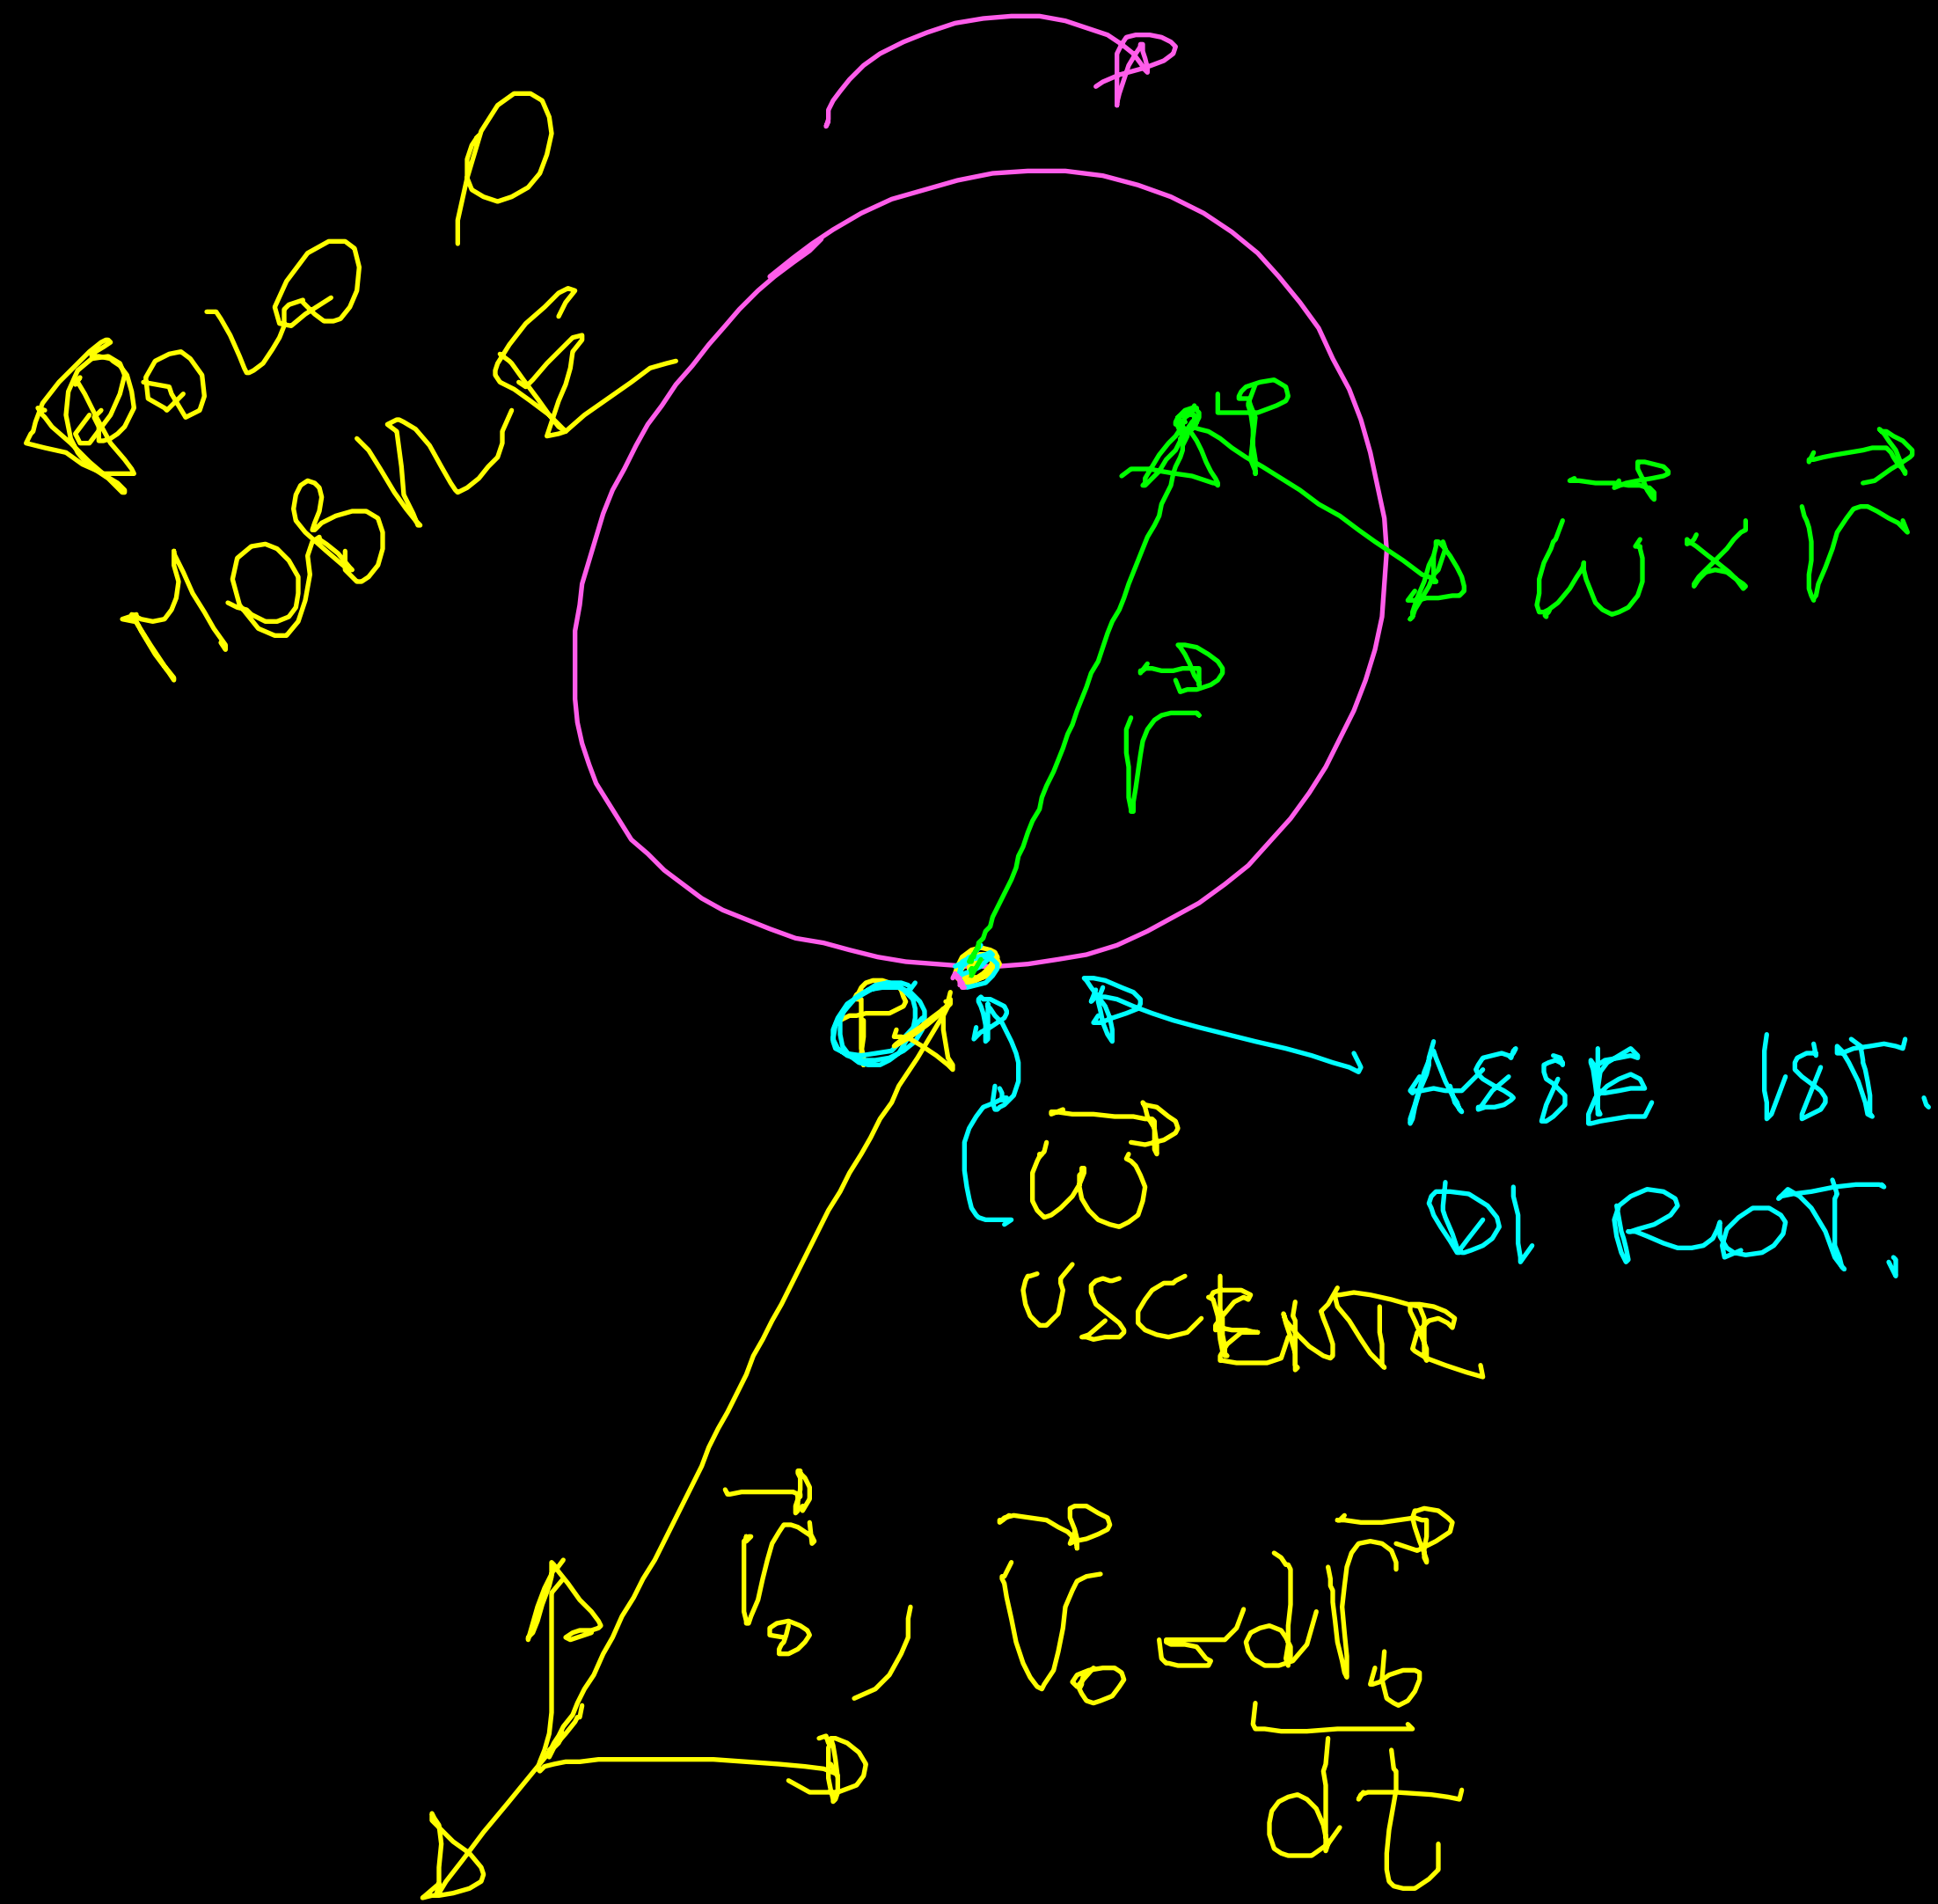 POLO P
MOBILE
P
ω⃗ × r⃗
r⃗
P
ASSE IST.
DI ROT.
ω⃗
USCENTE
r⃗₀, v⃗₀ = dr⃗₀
dt